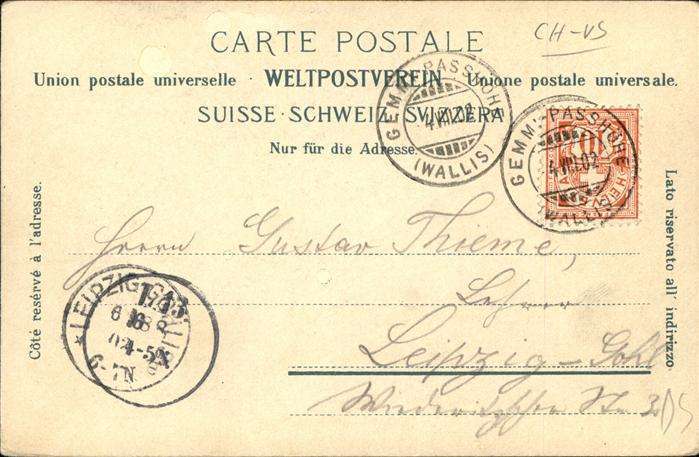 CH-VS
CARTE POSTALE
Union postale universelle · WELTPOSTVEREIN · Unione postale universale.
SUISSE · SCHWEIZ · SVIZZERA
Nur für die Adresse.
GEMMI-PASSHÖHE
4.VIII.02
(WALLIS)
GEMMI-PASSHÖHE
4.VIII.02
(WALLIS)
10
HELVETIA
Côté réservé à l'adresse.
Lato riservato all' indirizzo
LEIPZIG-GOHLIS
02
6-7N
Herrn Gustav Thieme,
Lehrer
Leipzig-Gohl
Str. 3